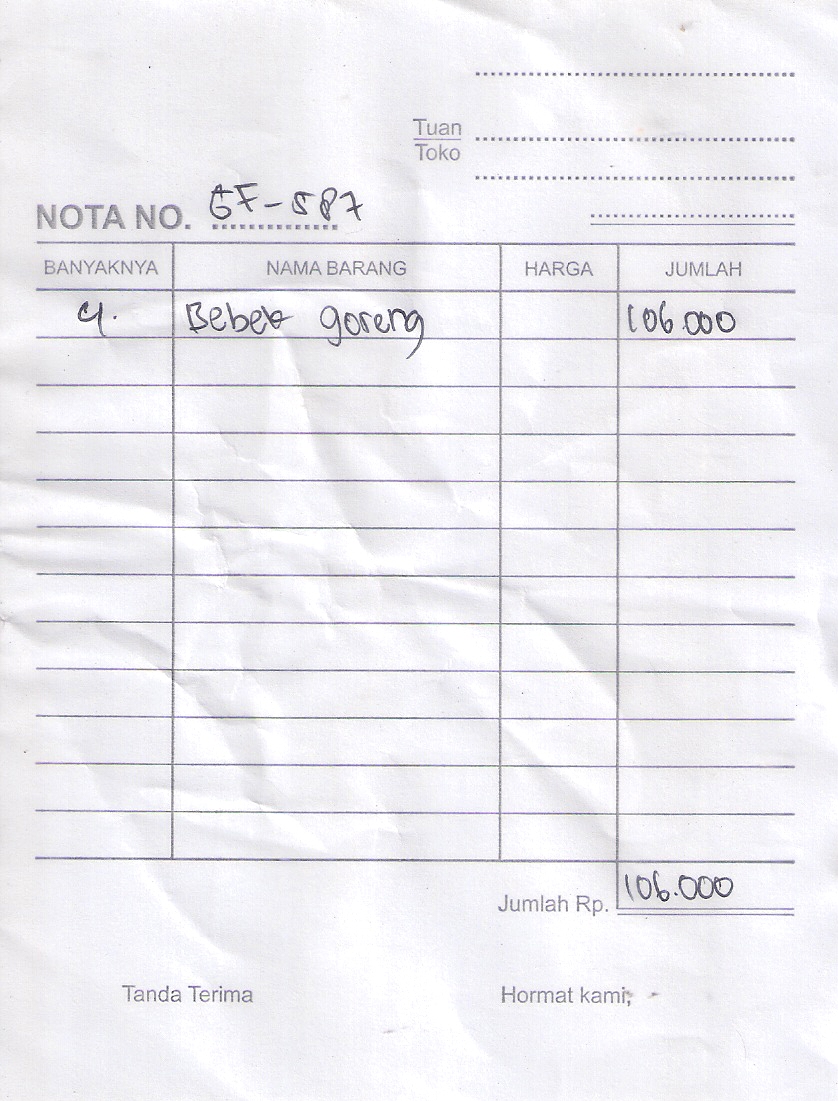 Tuan
Toko
NOTA NO. GF-587
BANYAKNYA NAMA BARANG HARGA JUMLAH
4. Bebek goreng 106.000
Jumlah Rp. 106.000
Tanda Terima Hormat kami,